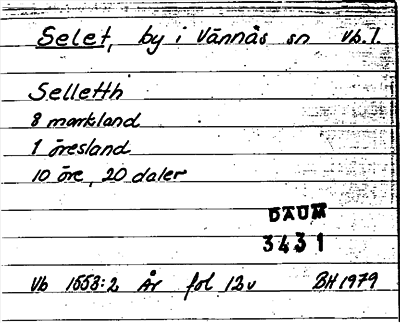 Selet, by i Vännäs sn Vb. l.
Selletth
8 markland
1 öresland
10 öre, 20 daler
DAUM
3431
Vb 1553:2 År fol 12v BH 1979